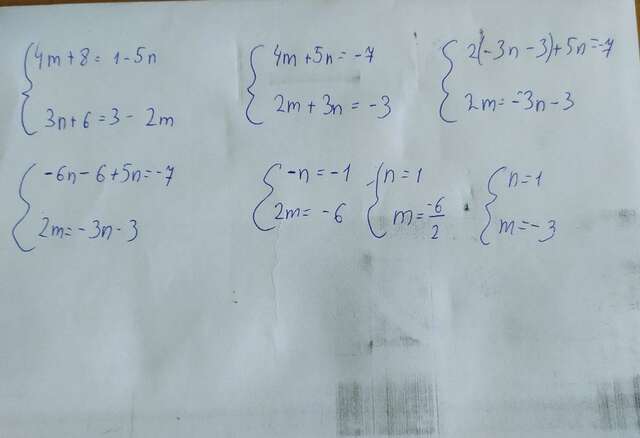 4m + 8 = 1 - 5n
3n + 6 = 3 - 2m
4m + 5n = -7
2m + 3n = -3
2(-3n - 3) + 5n = -7
2m = -3n - 3
-6n - 6 + 5n = -7
2m = -3n - 3
-n = -1
2m = -6
n = 1
m = -6/2
n = 1
m = -3